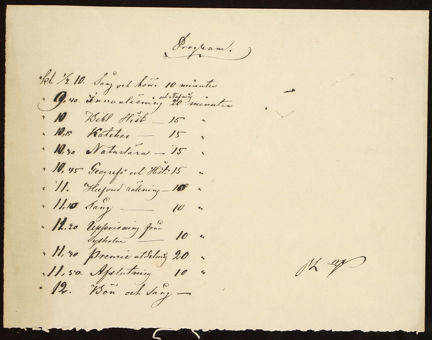 Program.
kl ½ 10. Sång och bön. 10 minuter
" 9,40. Innanläsning 20 minuter
" 10 Bibl Hist — 15 "
" 10,15 Katches — 15 "
" 10,30 Naturlära — 15 "
" 10,45 Geografi och Hist 15 "
" 11. Hufvud räkning — 10 "
" 11,10 Sång — 10 "
" 11.20 Uppvisning från
Syskolan — 10 "
" 11,30 Premie utdelning 20 "
" 11.50. Afslutning 10 "
" 12. Bön och Sång —